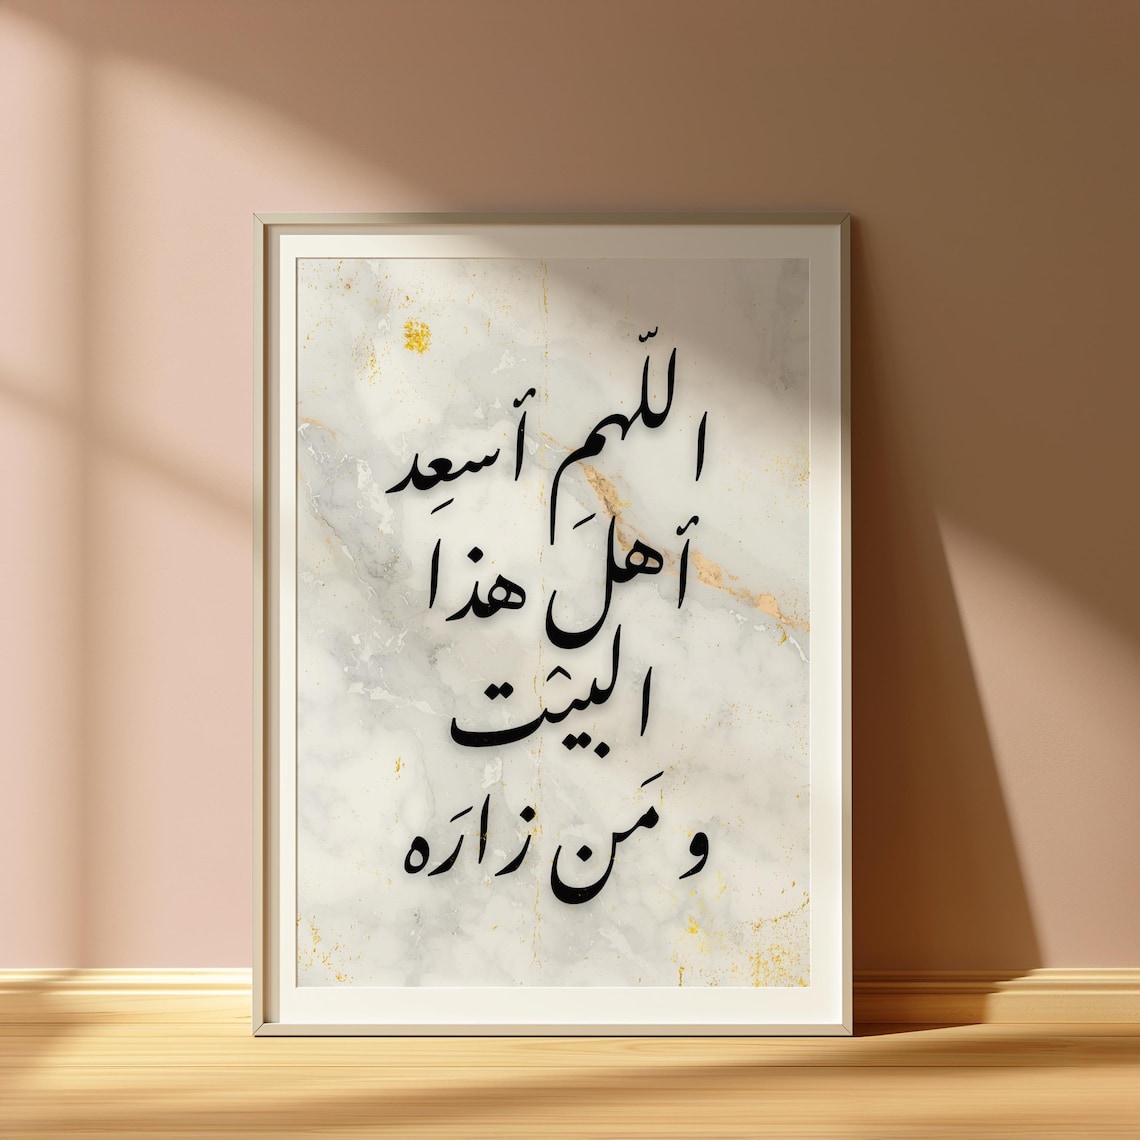 اللّهمِ أسعِد
أهلَ هذا
البيْت
و مَن زارَه